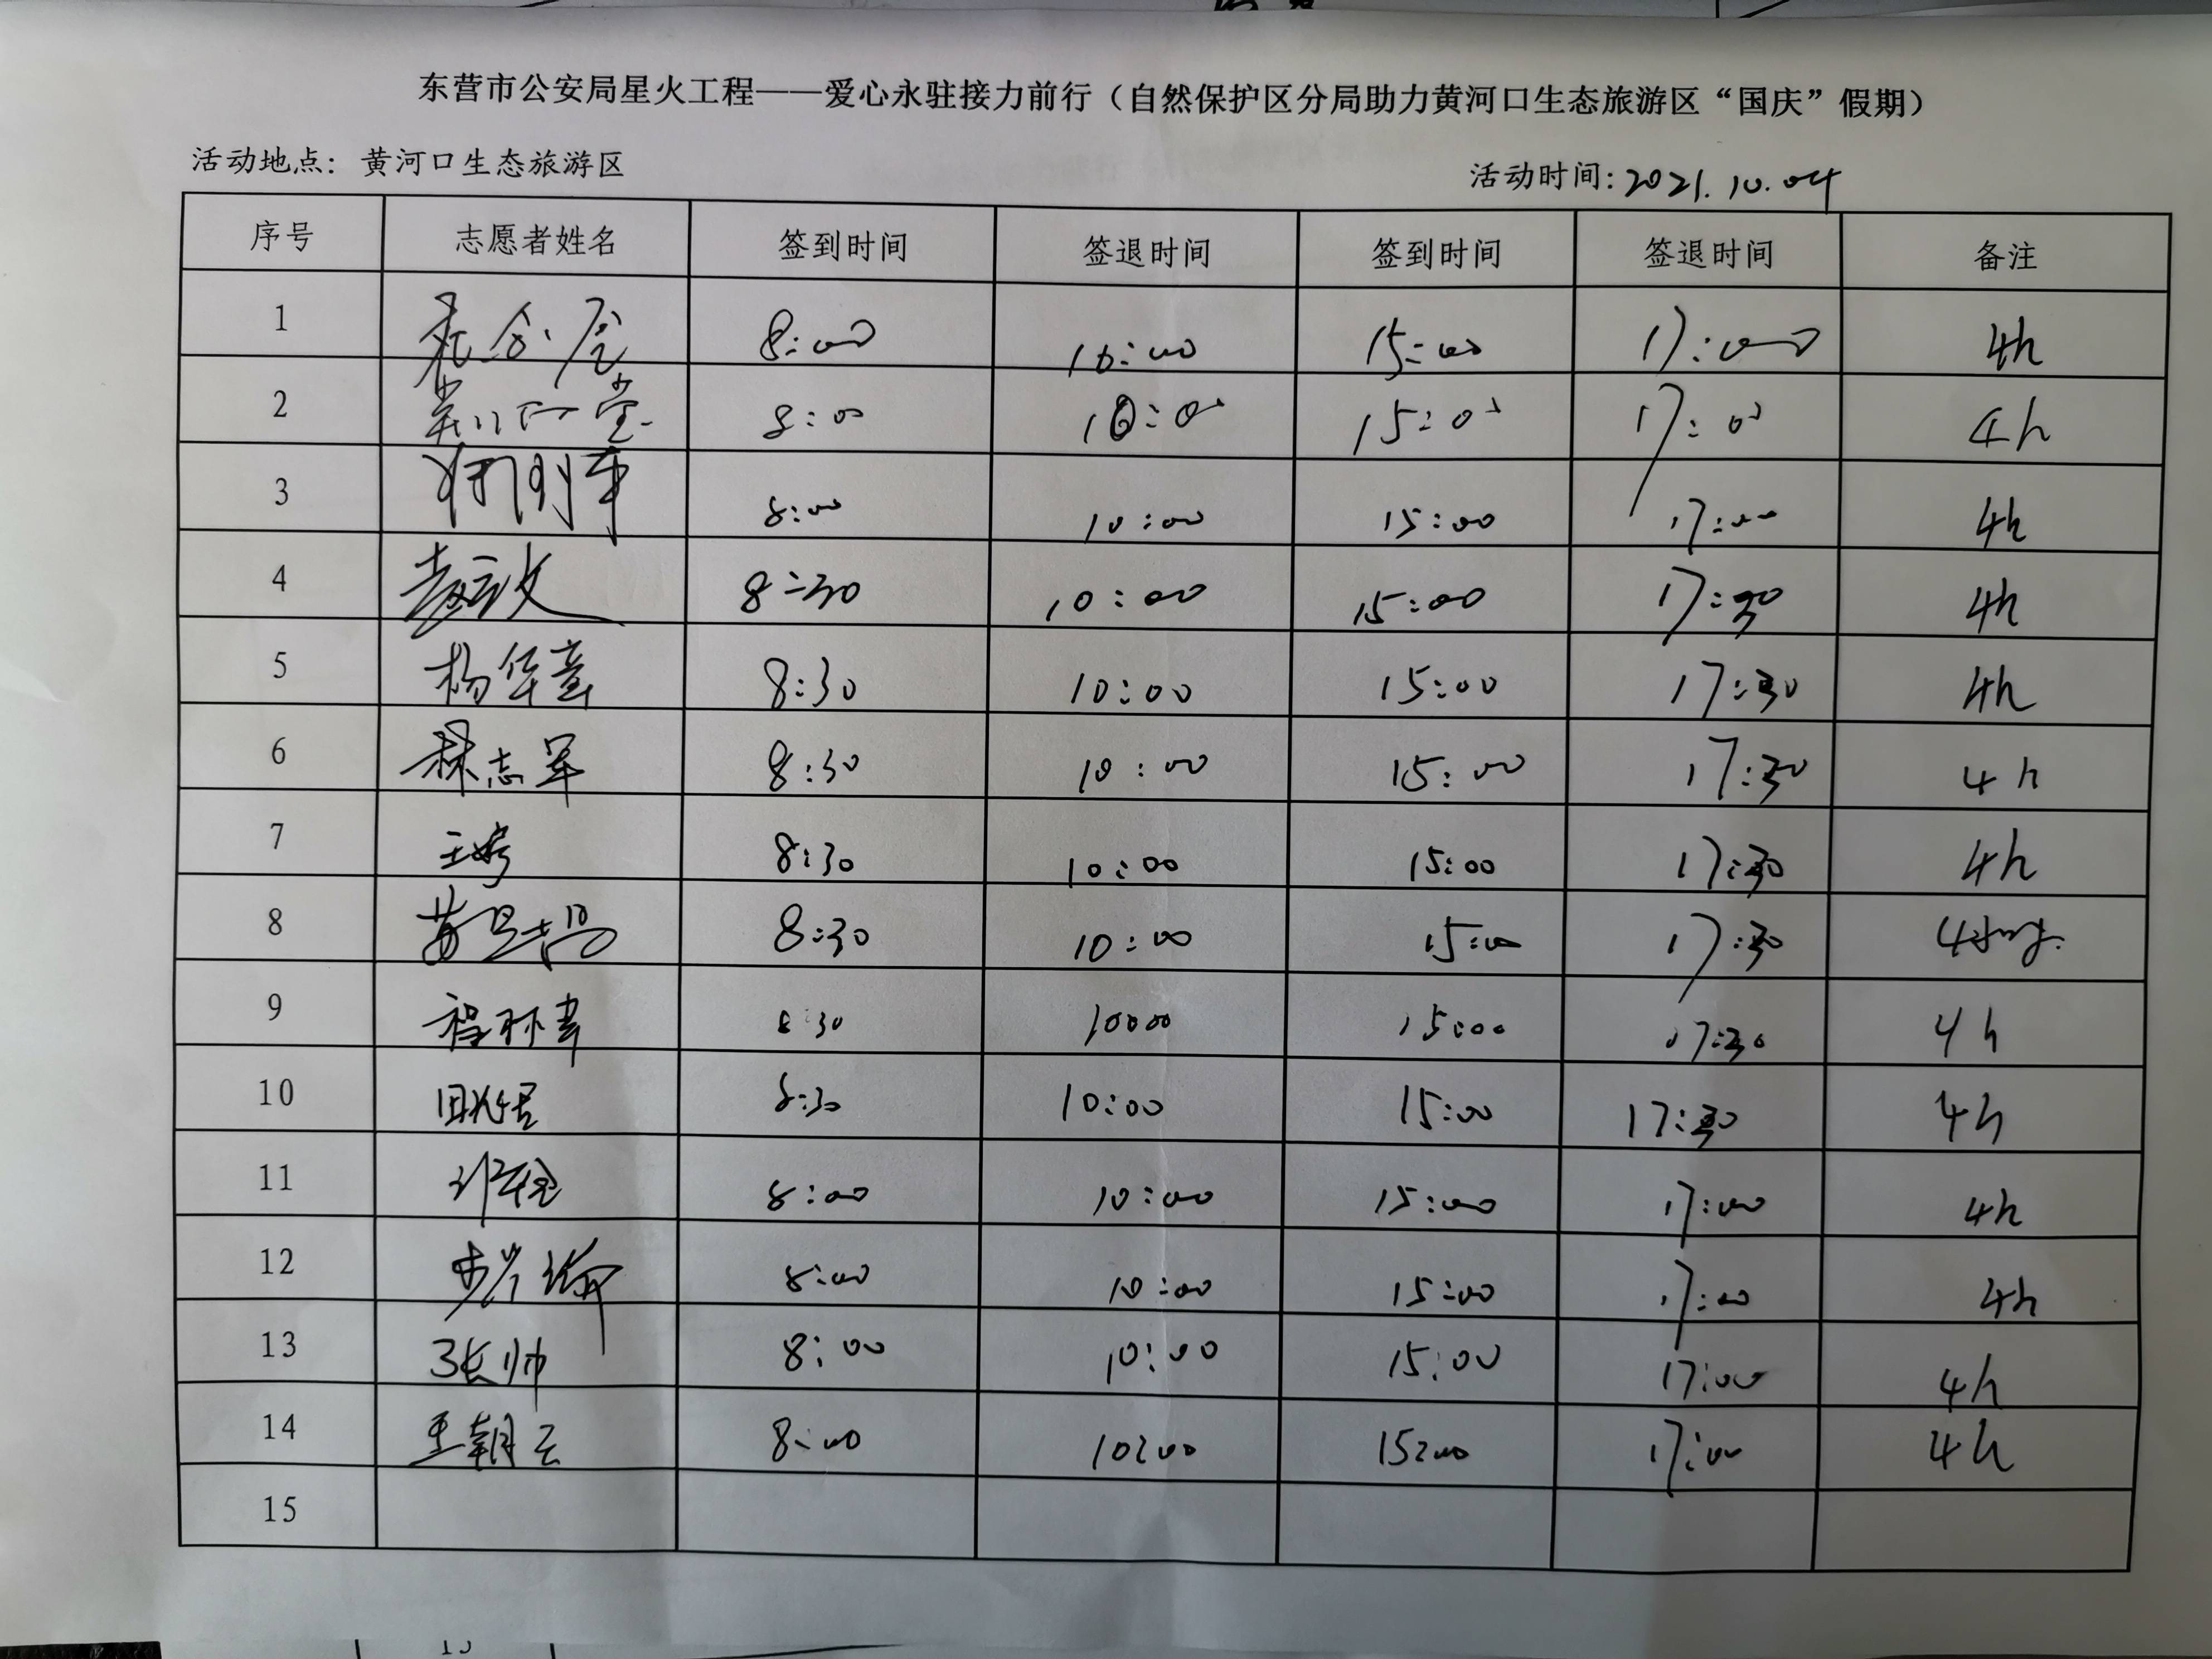 东营市公安局星火工程——爱心永驻接力前行（自然保护区分局助力黄河口生态旅游区“国庆”假期）
活动地点：黄河口生态旅游区 活动时间：2021.10.04
序号 志愿者姓名 签到时间 签退时间 签到时间 签退时间 备注
1 8:00 10:00 15:00 17:00 4h
2 8:00 10:00 15:00 17:00 4h
3 8:00 10:00 15:00 17:00 4h
4 8:30 10:00 15:00 17:30 4h
5 杨华 8:30 10:00 15:00 17:30 4h
6 林志军 8:30 10:00 15:00 17:30 4h
7 王 8:30 10:00 15:00 17:30 4h
8 8:30 10:00 15:00 17:30 4小时
9 程 8:30 10:00 15:00 17:30 4h
10 田 8:30 10:00 15:00 17:30 4h
11 8:00 10:00 15:00 17:00 4h
12 8:00 10:00 15:00 17:00 4h
13 张帅 8:00 10:00 15:00 17:00 4h
14 王朝云 8:00 10:00 15:00 17:00 4h
15